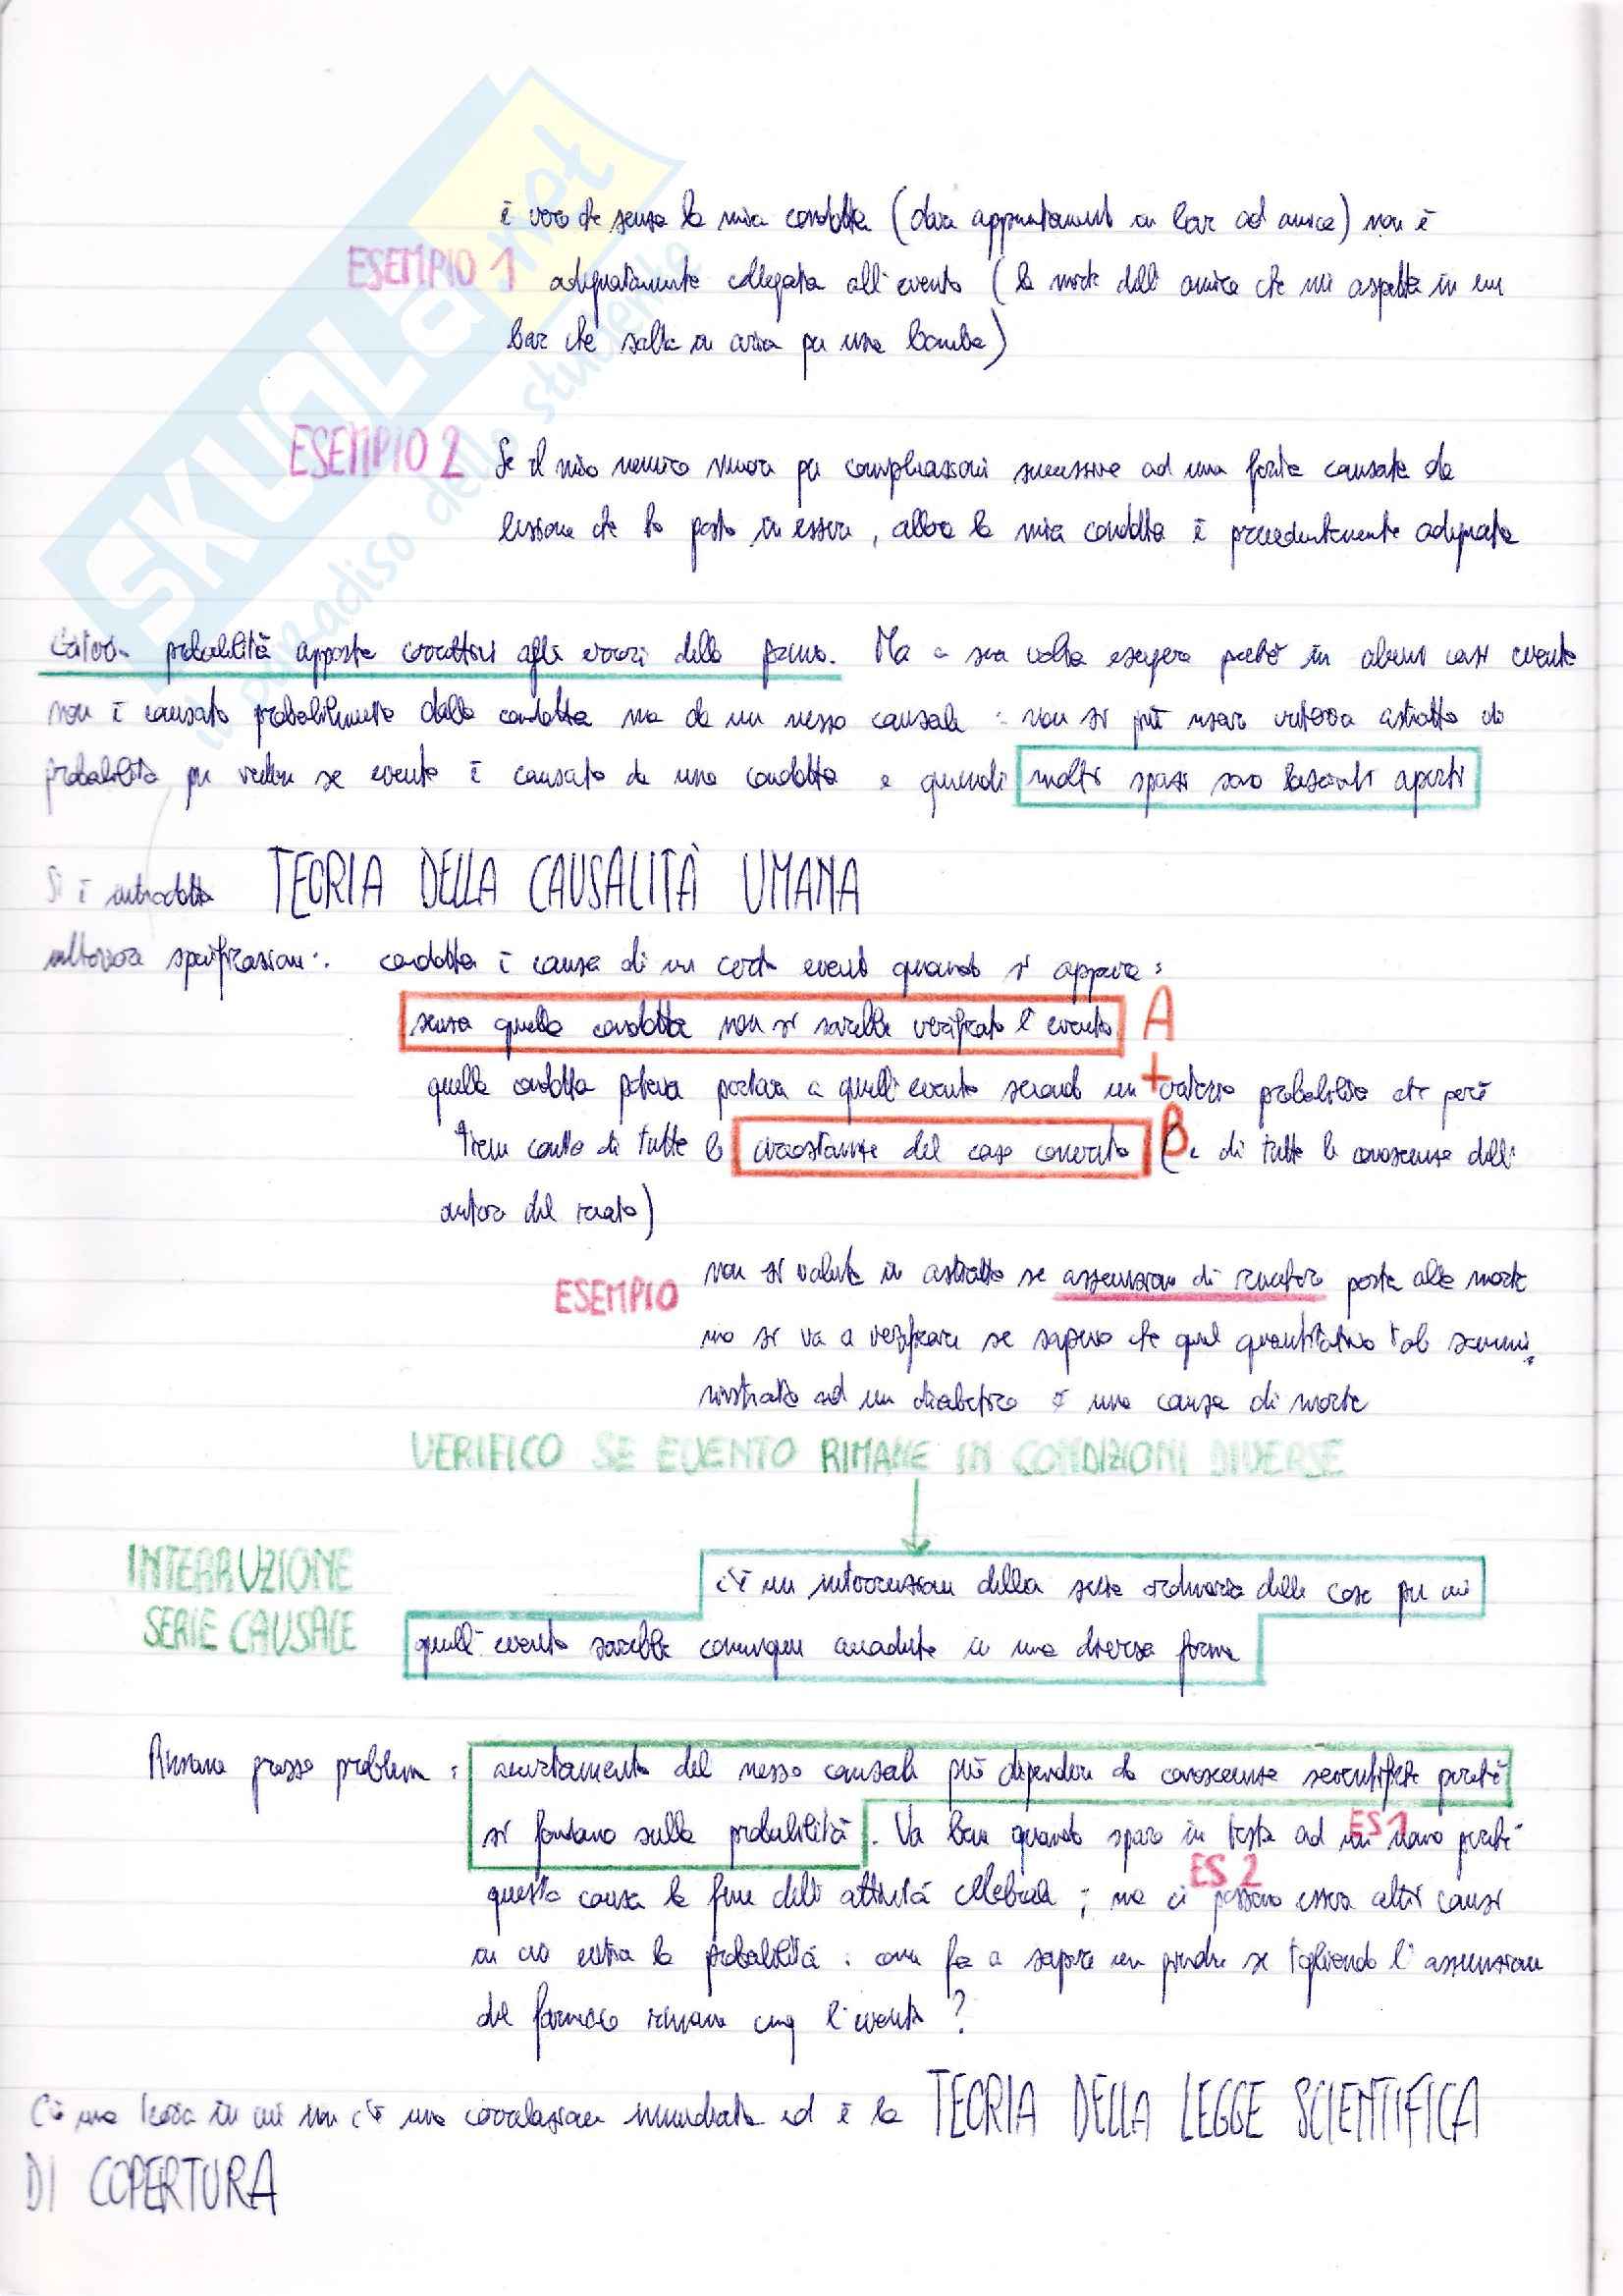 SKUOLA.net
il paradiso dello studente
è vero che senza la mia condotta (dare appuntamento in bar ad amica) non è
ESEMPIO 1 adeguatamente collegata all'evento (la morte dell'amica che mi aspetta in un
bar che salta in aria per una bomba)
ESEMPIO 2 Se il mio nemico muore per complicazioni successive ad una ferita causata da
lesione che ho posto in essere, allora la mia condotta è adeguata
probabilità apporta correttivi agli errori della prima. Ma a sua volta esagera perché in alcuni casi evento
non è causato probabilmente dalla condotta ma da un nesso causale: non si può usare criterio astratto di
probabilità per vedere se evento è causato da una condotta e quindi molti spazi sono lasciati aperti
Si è introdotta TEORIA DELLA CAUSALITÀ UMANA
ulteriore specificazione: condotta è causa di un certo evento quando si appura:
senza quella condotta non si sarebbe verificato l'evento A
+
quella condotta poteva portare a quell'evento secondo un criterio probabilistico che però
B
tiene conto di tutte le circostanze del caso concreto (e di tutte le conoscenze dell'
autore del reato)
ESEMPIO non si valuta in astratto se assunzione di zucchero porta alla morte
ma si va a verificare se sapevo che quel quantitativo tot sommi
nistrato ad un diabetico è una causa di morte
VERIFICO SE EVENTO RIMANE IN CONDIZIONI DIVERSE
INTERRUZIONE
SERIE CAUSALE
c'è un' della serie ordinaria delle cose per cui
quell'evento sarebbe comunque accaduto in una diversa forma
Rimane grosso problema: accertamento del nesso causale può dipendere da conoscenze scientifiche perché
si fondano sulla probabilità. Va bene quando sparo in testa ad un uomo perché
ES 1
questo causa la fine dell'attività cerebrale; ma ci possono essere altri causi
ES 2
in cui entra la probabilità: come fa a sapere un giudice se togliendo l'assunzione
del farmaco rimane cmq l'evento?
C'è una teoria in cui non c'è una correlazione immediata ed è la TEORIA DELLA LEGGE SCIENTIFICA
DI COPERTURA